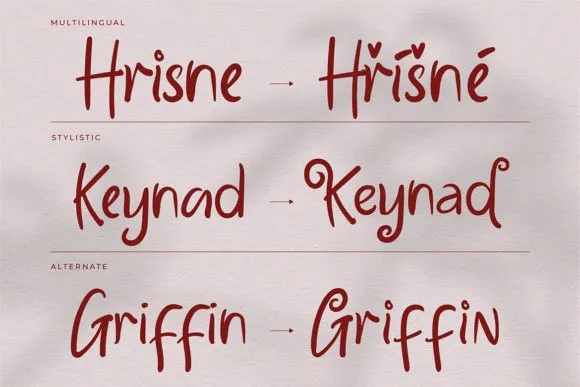 MULTILINGUAL
Hrisne → Hříšné
STYLISTIC
Keynad → Keynad
ALTERNATE
Griffin → Griffin